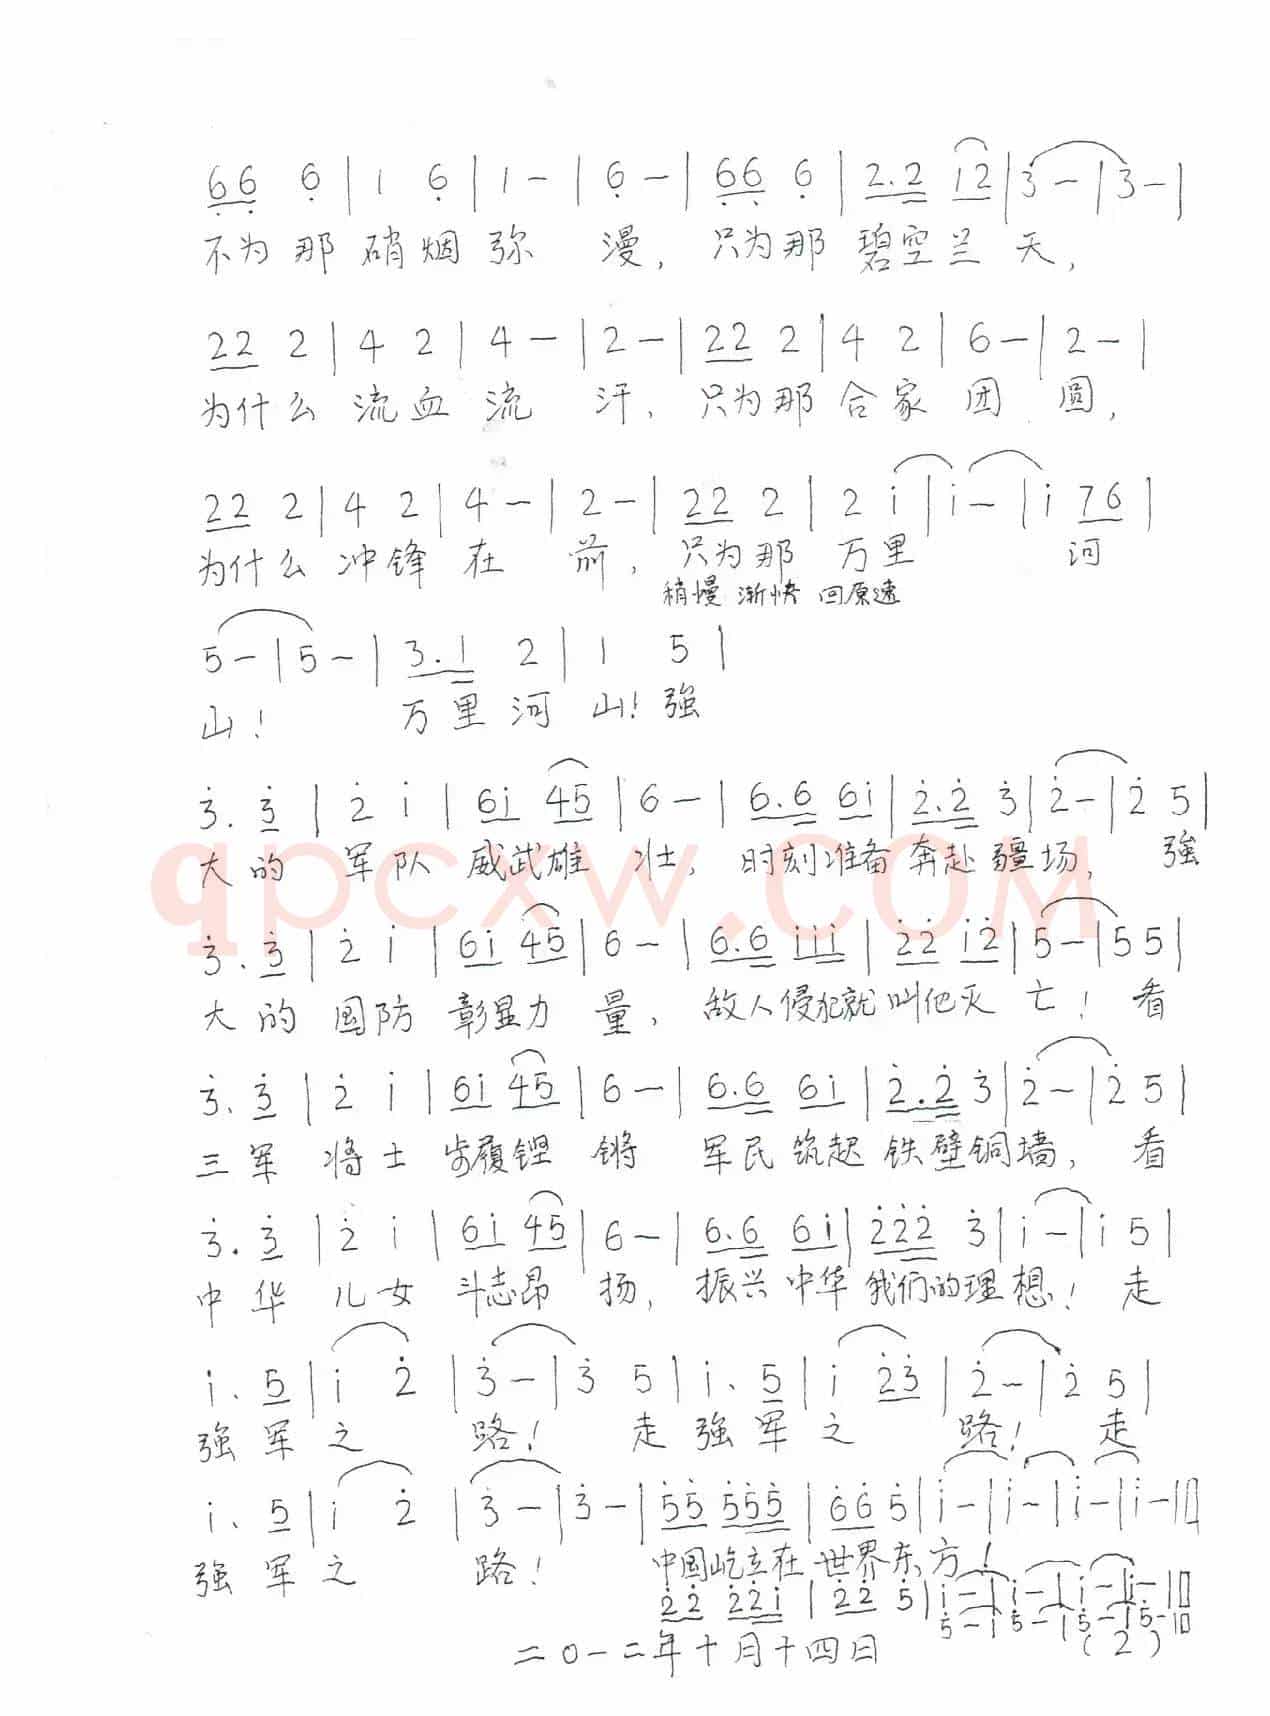 66 6 | 1 6 | 1 - | 6 - | 66 6 | 2.2 12 | 3 - | 3 - |
不为那硝烟弥漫，只为那碧空兰天，
22 2 | 4 2 | 4 - | 2 - | 22 2 | 4 2 | 6 - | 2 - |
为什么流血流汗，只为那合家团圆，
22 2 | 4 2 | 4 - | 2 - | 22 2 | 2 i | i - | i 76 |
为什么冲锋在前，只为那万里河
稍慢 渐快 回原速
5 - | 5 - | 3.1 2 | 1 5 |
山！万里河山！强
3. 3 | 2 i | 6i 45 | 6 - | 6.6 6i | 2.2 3 | 2 - | 2 5 |
大的军队威武雄壮，时刻准备奔赴疆场，强
qpcxw.COM
3. 3 | 2 i | 6i 45 | 6 - | 6.6 iii | 22 i2 | 5 - | 55 |
大的国防彰显力量，敌人侵犯就叫他灭亡！看
3. 3 | 2 i | 6i 45 | 6 - | 6.6 6i | 2.2 3 | 2 - | 2 5 |
三军将士步履铿锵 军民筑起铁壁铜墙，看
3. 3 | 2 i | 6i 45 | 6 - | 6.6 6i | 222 3 | i - | i 5 |
中华儿女斗志昂扬，振兴中华我们的理想！走
i. 5 | i 2 | 3 - | 3 5 | i. 5 | i 23 | 2 - | 2 5 |
强军之路！走强军之路！走
i. 5 | i 2 | 3 - | 3 - | 55 555 | 66 5 | i - | i - | i - | i - ||
强军之路！中国屹立在世界东方！
22 22i | 22 5 | i - | i - | i - | i - ||
5 - | 5 - | 5 - | 5 - ||
二〇一二年十月十四日 (2)